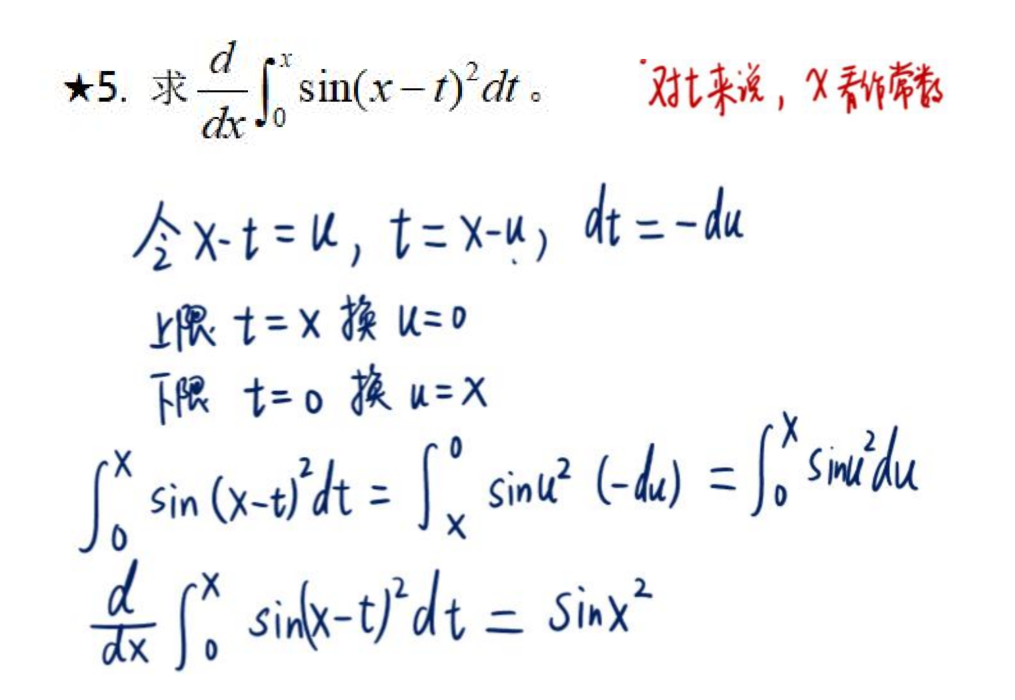 ★5. 求 d/dx ∫₀ˣ sin(x−t)²dt。 对t来说，x看作常数
令 x-t=u, t=x-u, dt=-du
上限 t=x 换 u=0
下限 t=0 换 u=x
∫₀ˣ sin(x-t)²dt = ∫ₓ⁰ sinu² (-du) = ∫₀ˣ sinu²du
d/dx ∫₀ˣ sin(x-t)²dt = sinx²